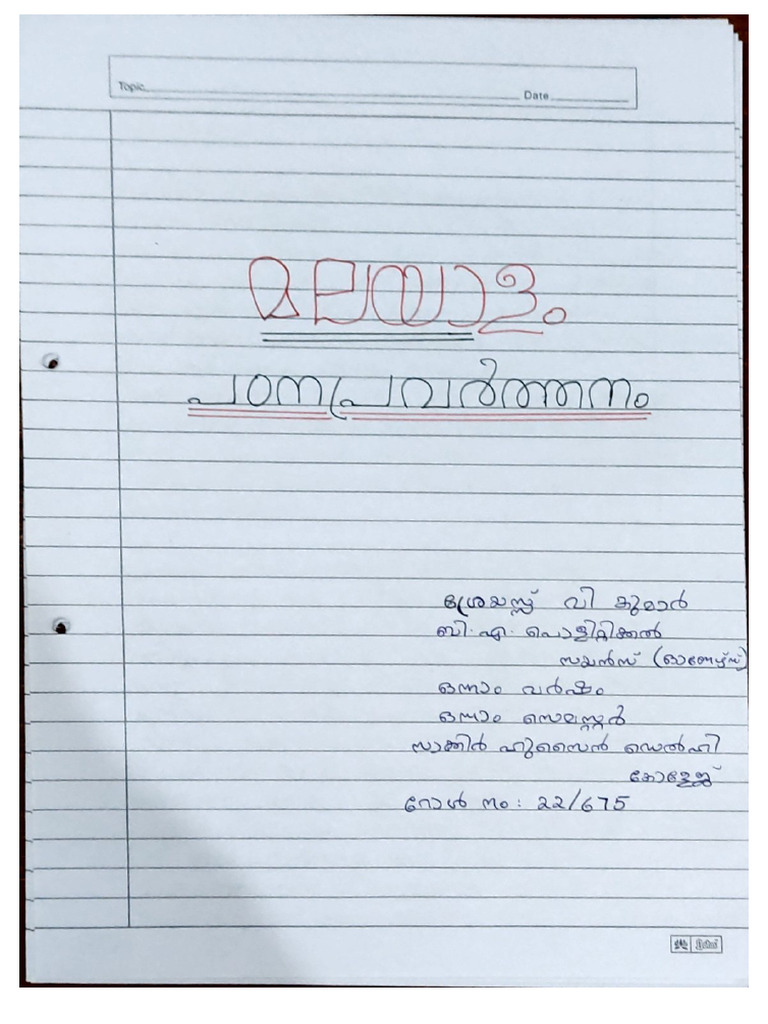 Topic
Date
മലയാളം
പഠനപ്രവർത്തനം
ശ്രേയസ്സ് വി കുമാർ
ബി.എ. പൊളിറ്റിക്കൽ
സയൻസ് (ഓണേഴ്സ്)
ഒന്നാം വർഷം
ഒന്നാം സെമസ്റ്റർ
സാക്കിർ ഹുസൈൻ ഡെൽഹി
കോളേജ്
റോൾ നം: 22/675